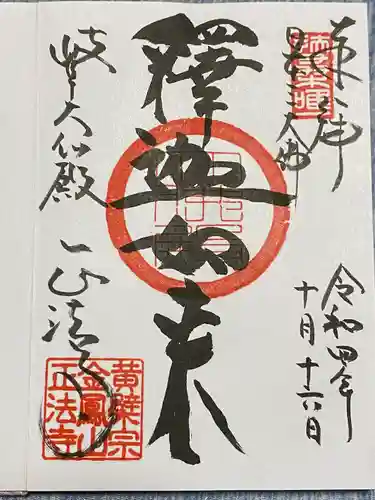 奉拝
日本三大佛
令和四年
十月十六日
釋迦如来
岐阜大仏殿
黄檗宗
金鳳山
正法寺